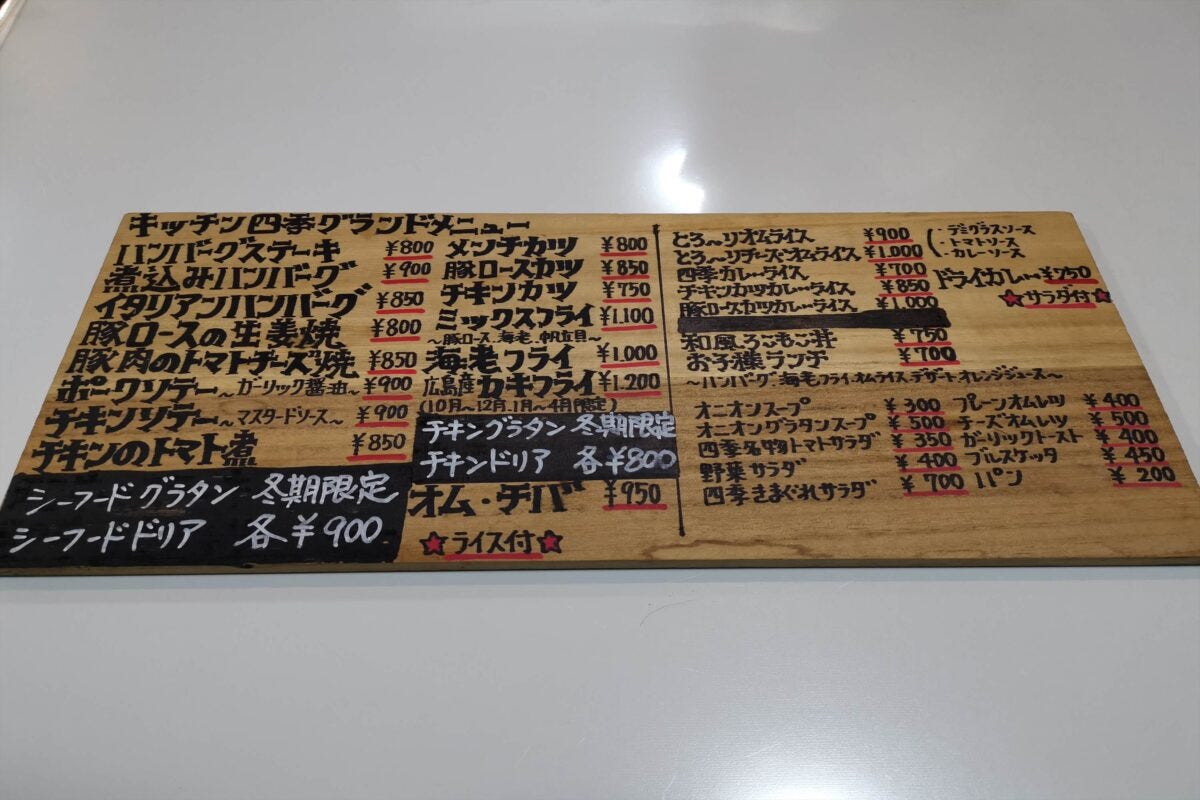 キッチン四季グランドメニュー
ハンバーグステーキ ¥800
煮込みハンバーグ ¥900
イタリアンハンバーグ ¥850
豚ロースの生姜焼 ¥800
豚肉のトマトチーズ焼 ¥850
ポークソテー～ガーリック醤油～ ¥900
チキンソテー～マスタードソース～ ¥900
チキンのトマト煮 ¥850
シーフードグラタン 冬期限定
シーフードドリア 各¥900
メンチカツ ¥800
豚ロースカツ ¥850
チキンカツ ¥750
ミックスフライ ¥1,100
～豚ロース、海老、帆立貝～
海老フライ ¥1,000
広島産カキフライ ¥1,200
(10月～12月、1月～4月限定)
チキングラタン 冬期限定
チキンドリア 各¥800
オム・チバ ¥950
★ライス付★
とろ～りオムライス ¥900
とろ～りチーズ・オムライス ¥1,000
四季カレーライス ¥700
チキンカツカレーライス ¥850
豚ロースカツカレーライス ¥1,000
・デミグラスソース
・トマトソース
・カレーソース
ドライカレー ¥750
★サラダ付★
和風ろこもこ丼 ¥750
お子様ランチ ¥700
～ハンバーグ、海老フライ、オムライス、デザート、オレンジジュース～
オニオンスープ ¥300
オニオングラタンスープ ¥500
四季名物トマトサラダ ¥350
野菜サラダ ¥400
四季きまぐれサラダ ¥700
プレーンオムレツ ¥400
チーズオムレツ ¥500
ガーリックトースト ¥400
ブルスケッタ ¥450
パン ¥200